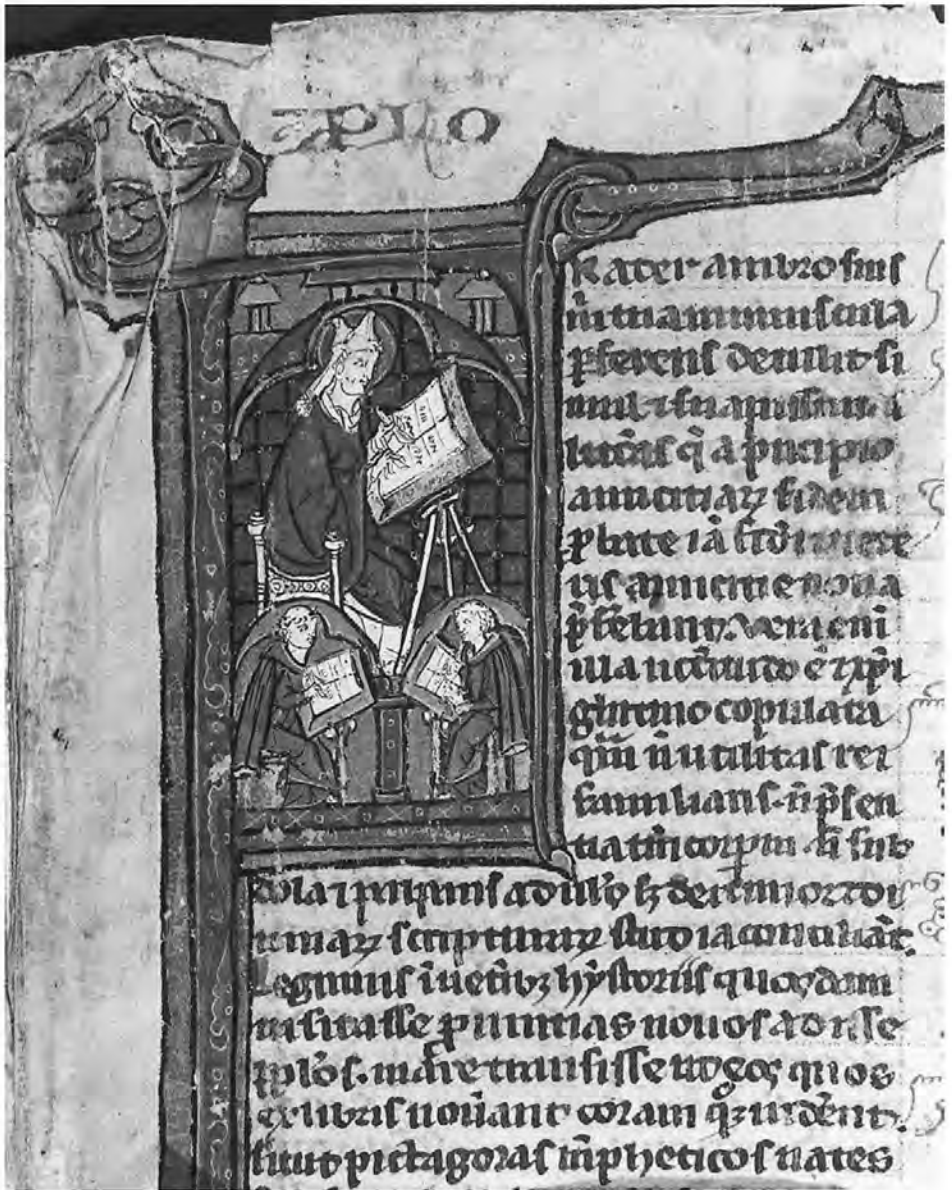 plo
Rater ambrosius
michi tua munuscula
pferens detulit si
mul
littās q̄ a pncipio
amicitiaꝝ fidem
pbate iā
us amicitie noua
pferebant. Vera enī
illa nccītudo ē ⁊ xpi
glutino copulata
qm̄ n̄ utilitas rei
familiaris. n̄ psen
tia tm̄ corpm n̄ sub
dola ⁊ adulō sꝫ dei timor ⁊ di
uinaꝝ scripturaꝝ studia conciliāt.
Legimus ī uetībꝫ hystoriis quosdam
lustrasse puintias nouos adisse
pplōs. maria transisse ut eos quos
ex libris nouāt coram qꝫ uidēnt.
Sicut pictagoras mpheticos uates